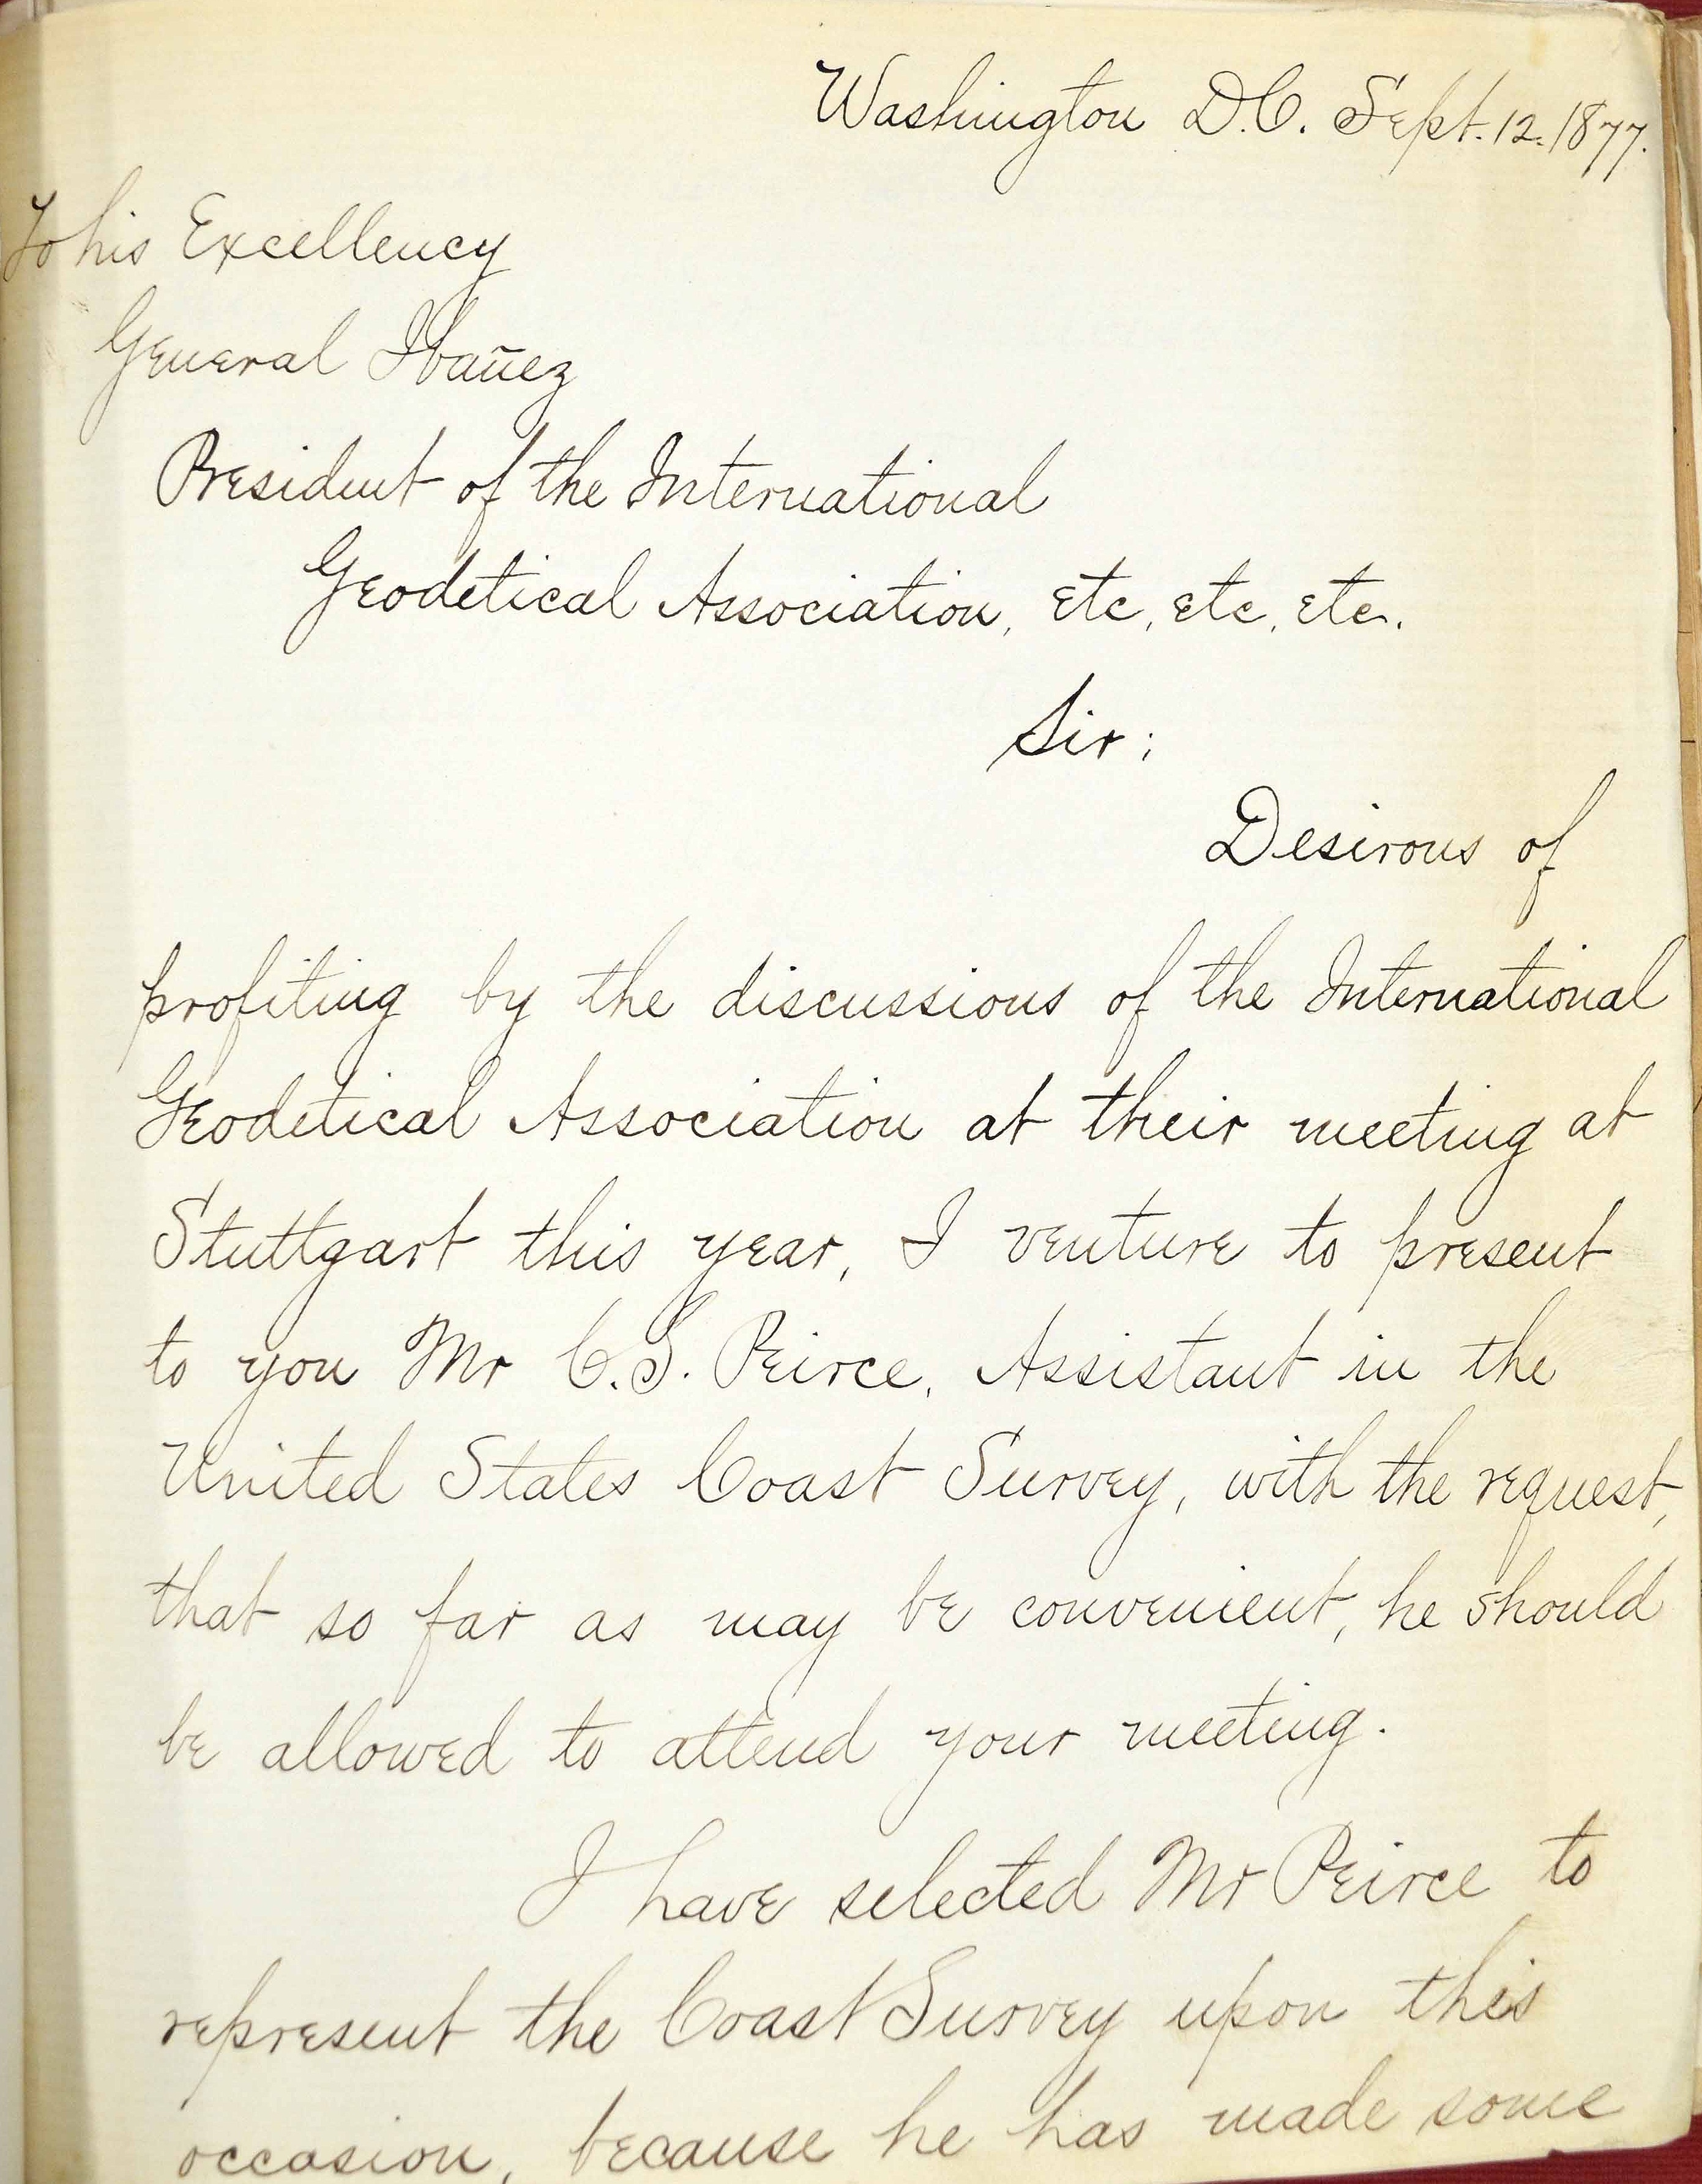 Washington D.C. Sept. 12. 1877.
To his Excellency
General Ibañez
President of the International
Geodetical Association, etc, etc, etc.
Sir;
Desirous of
profiting by the discussions of the International
Geodetical Association at their meeting at
Stuttgart this year, I venture to present
to you Mr C.S. Peirce, Assistant in the
United States Coast Survey, with the request,
that so far as may be convenient, he should
be allowed to attend your meeting.
I have selected Mr Peirce to
represent the Coast Survey upon this
occasion, because he has made some